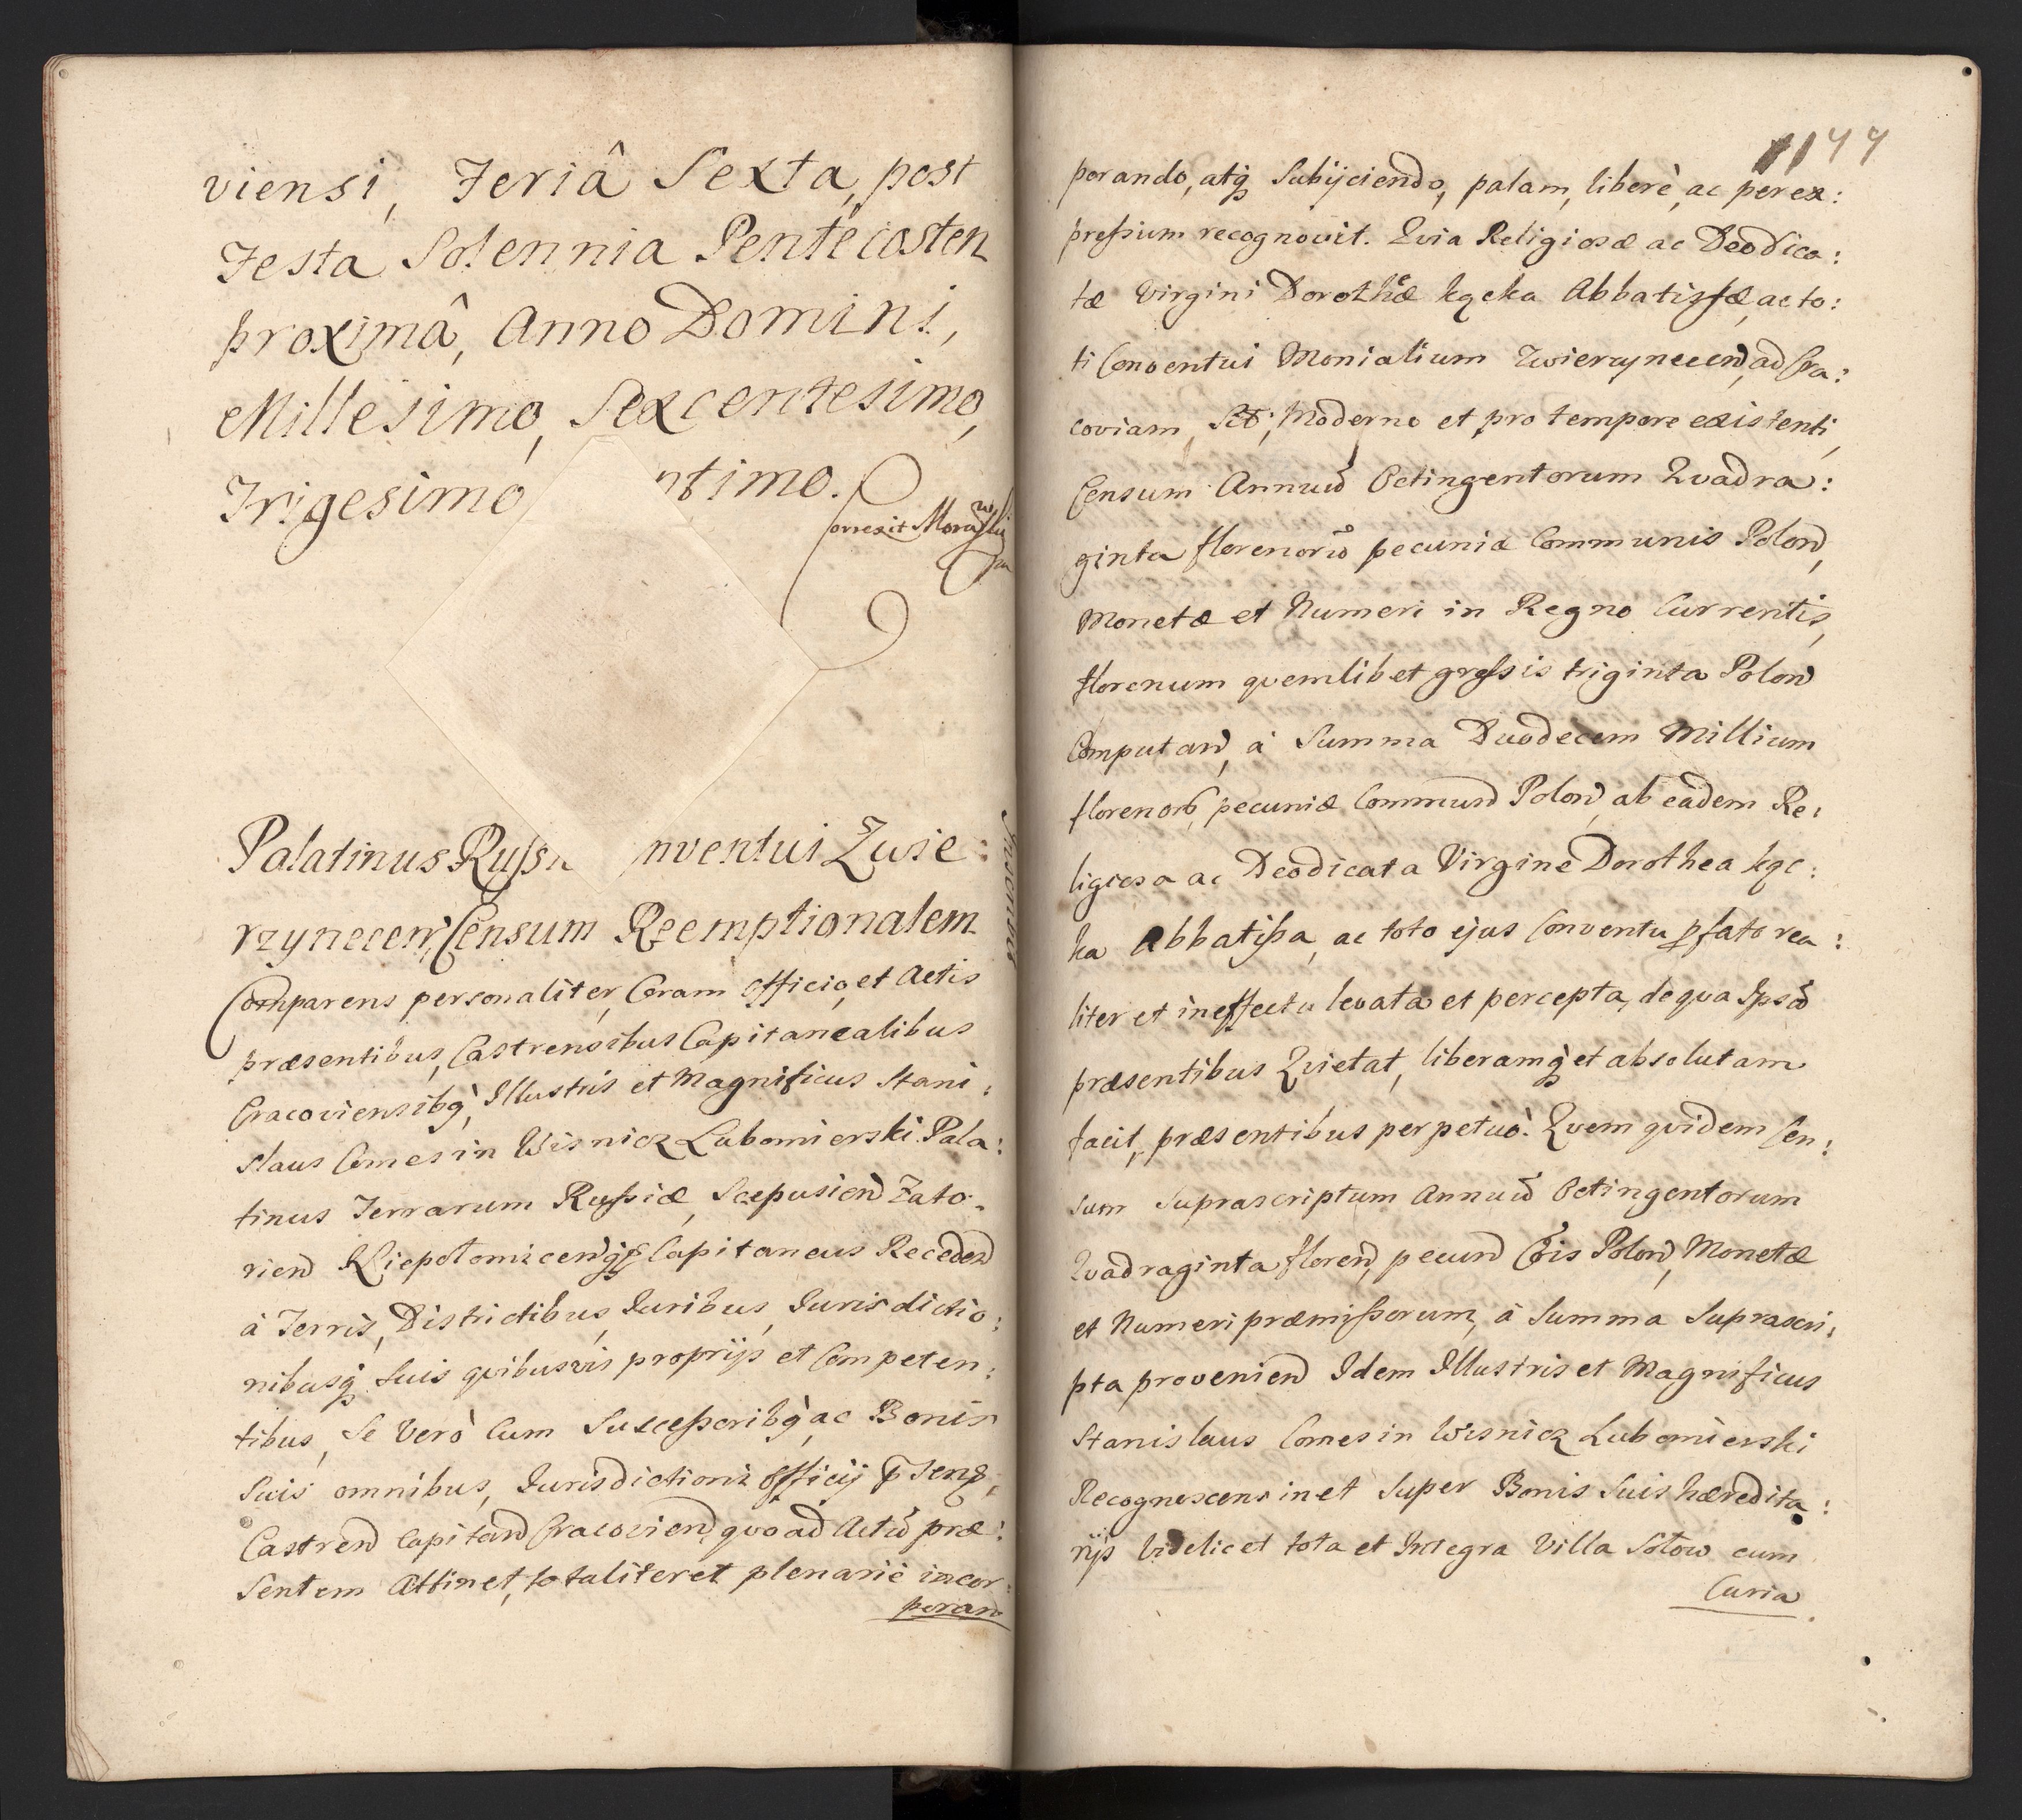 viensi, Feriâ Sexta, post
Festa Solennia Pentecosten
proximâ, Anno Domini,
Millesimo, Sexcentesimo,
Trigesimo ptimo.
Correxit
Palatinus Russi nventui Zwie:
rzynecen, Censum Reemptionalem
Comparens personaliter, Coram officio, et Actis
præsentibus, Castrensibus Capitanealibus
Cracoviensibq̀, Illustris et Magnificus Stani:
slaus Comes in Wisnicz Lubomierski Pala:
tinus Terrarum Russiæ, Scepusien Zato:
rien Capitaneus Recedend
à Terris, Districtibus, Iuribus, Iurisdictio:
nibusq Suis qvibusvis proprijs et Competen:
tibus, Se Verò Cum Successoribq̀, ac Bonis
Suis omnibus, Iurisdictioni Officij
Castren Capitan Cracovien, qvo ad Actũ præ:
sentem Attinet, totaliter et plenarie incor:
poran
1177
porando, atq Subijciendo, palam, liberè, ac per ex:
pressum recognovit. Qvia Religiosæ ac Deodica:
tæ Virgini Dorotheæ kącka Abbatissæ, ac to:
ti Conventui Monialium Zwierzynecen, ad Cra:
coviam, Moderno et pro tempore existenti,
Censum Annuũ Octingentorum Qvadra:
ginta florenorũ pecuniæ Communis Polon,
Monetæ et Numeri in Regno Currentis,
florenum qvemlibet grossis triginta Polon
Computan, à Summa Duodecem Millium
florenor, pecuniæ Commun Polon, ab eadem Re:
ligiosa ac Deodicata Virgine Dorothea kąc:
ka Abbatissa, ac toto ejus Conventu pfato rea:
liter et in effectu levata et percepta, de qva Ipsũ
præsentibus Qvietat, liberamq̀ et absolutam
facit, præsentibus perpetuò. Qvem qvidem Cen:
sum Suprascriptum Annuũ Octingentorum
Qvadraginta floren, pecun Cõis Polon, Monetæ
et Numeri præmissorum, à Summa Suprascri:
pta provenien Idem Illustris et Magnificus
Stanislaus Comes in Wisnicz Lubomierski
Recognoscens in et Super Bonis Suis hæredita:
rijs videlicet tota et Integra Villa Sołow cum
Curia